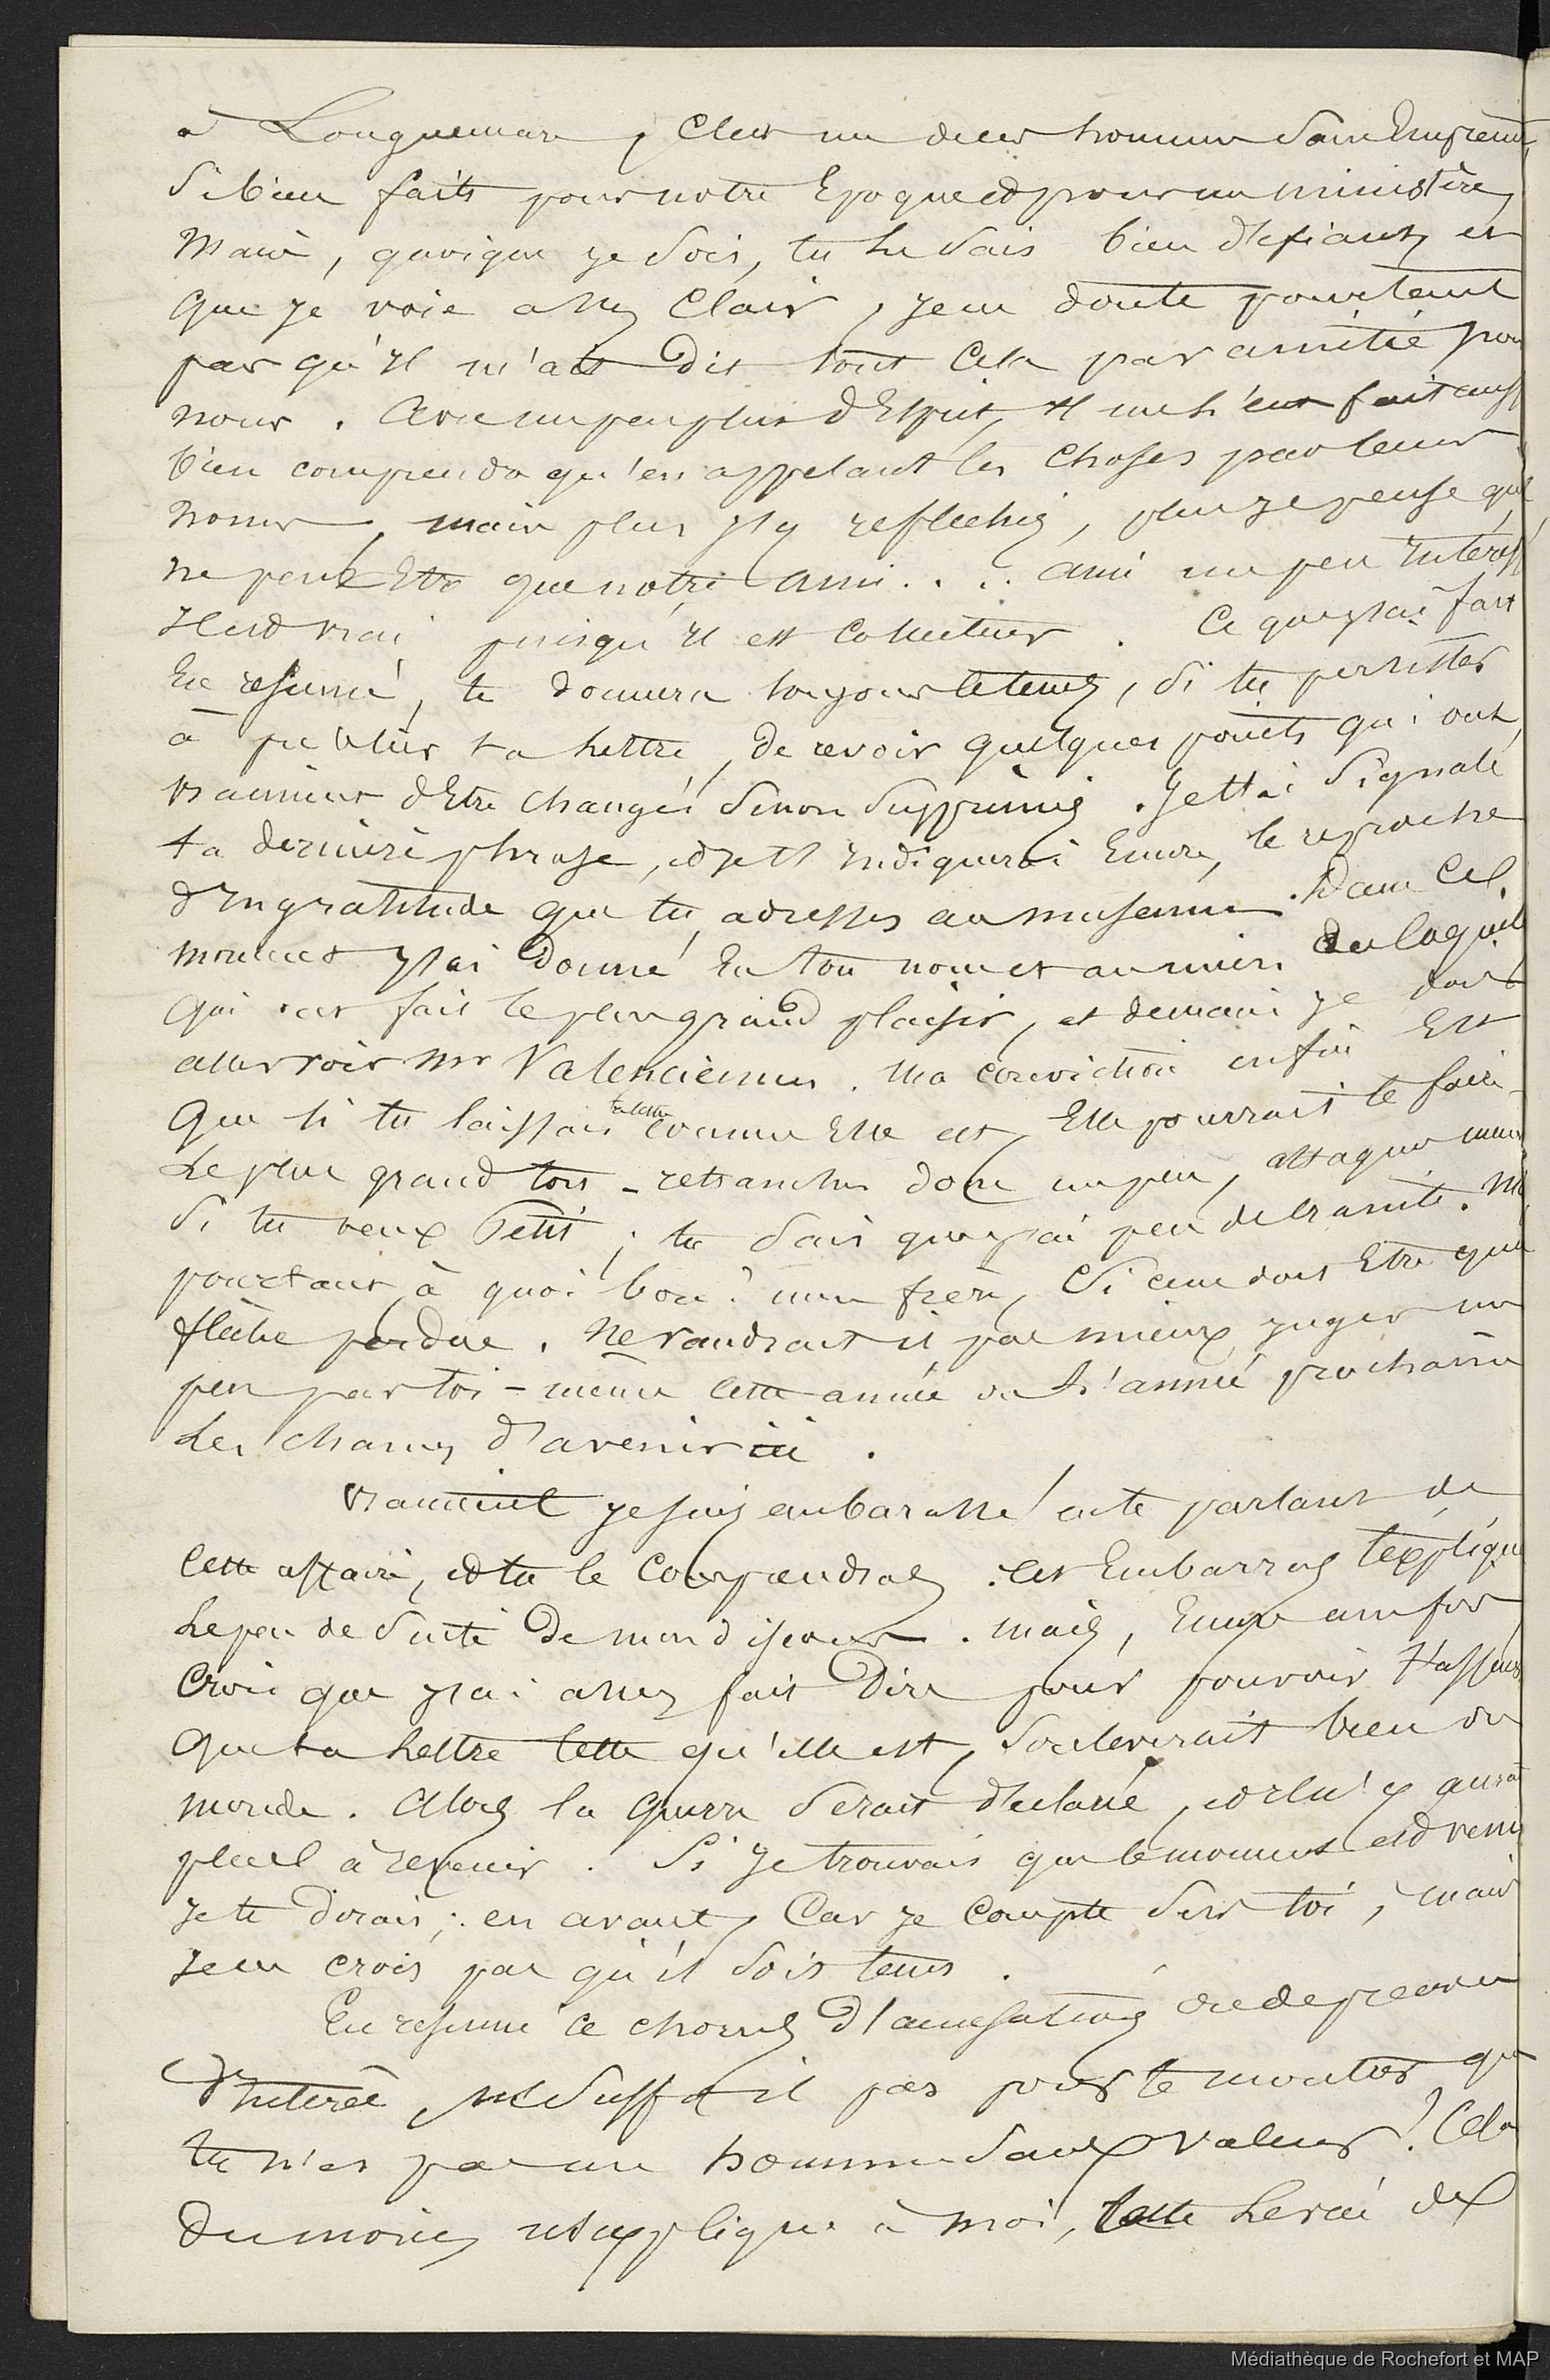 à Longuemare, C'est un de ces hommes sans Empreinte,
Si bien faits pour notre Epoque et pour un ministère,
Mais, quoique je sois, tu le sais bien défiant, et
que je voie assez Clair, je ne doute pourtant
pas qu'il m'ait dit tout Cela par amitié pour
nous. Avec un peu plus d'Esprit, il me l'eut fait aussi
bien comprendre qu'en appelant les Choses par leurs
noms, mais plus j'y reflechis, plus je pense qu'il
ne peut Etre que notre ami . . . ami un peu intéressé
il est vrai puisqu'il est Collecteur. Ce que j'ai fait
En resumé, te donnera toujours le tems, si tu persistes
à publier ta lettre, de revoir quelques points qui ont
vraiment d'Etre changés sinon supprimés. Je t'ai signalé
ta dernière phrase, et je t'indiquerai Encore, le reproche
d'ingratitude que tu adresses au museum. Dans ce
moment j'ai donné En ton nom et au mien des Coquilles
qui ont fait le plus grand plaisir, et demain je dois
aller voir Mr Valenciennes. Ma conviction enfin Est
que si tu laissais ta lettre comme Elle est, Elle pourrait te faire
le plus grand tort - retranches donc un peu, attaques même
si tu veux Petit; tu sais que j'ai peu de charité. Mais
pourtant à quoi bon? mon frère, Si ce ne doit Etre qu'une
flèche perdue. Ne vaudrait il pas mieux juger un
peu par toi-même cette année ou l'année prochaine
les chances d'avenir ici.
Vraiment je suis embarassé en te parlant de
cette affaire, et tu le Comprendras. Cet Embarras t'explique
le peu de suite de mon discours. Mais, Encore une fois,
Crois que j'ai assez fait Dire pour pouvoir t'assurer
que ta lettre telle qu'elle est, souleverait bien du
monde. Alors la guerre serait déclarée, et il n'y aurait
plus à revenir. Si je trouvais que le moment est venu
je te dirais; en avant, Car je Compte sur toi, mais
je ne crois pas qu'il soit tems.
En resumé ce chorus d'accusations et de preuves
d'interêt, ne suffit il pas pour te montrer que
tu n'es pas un homme sans valeur? Cela
du moins m'explique à moi, cette levée de